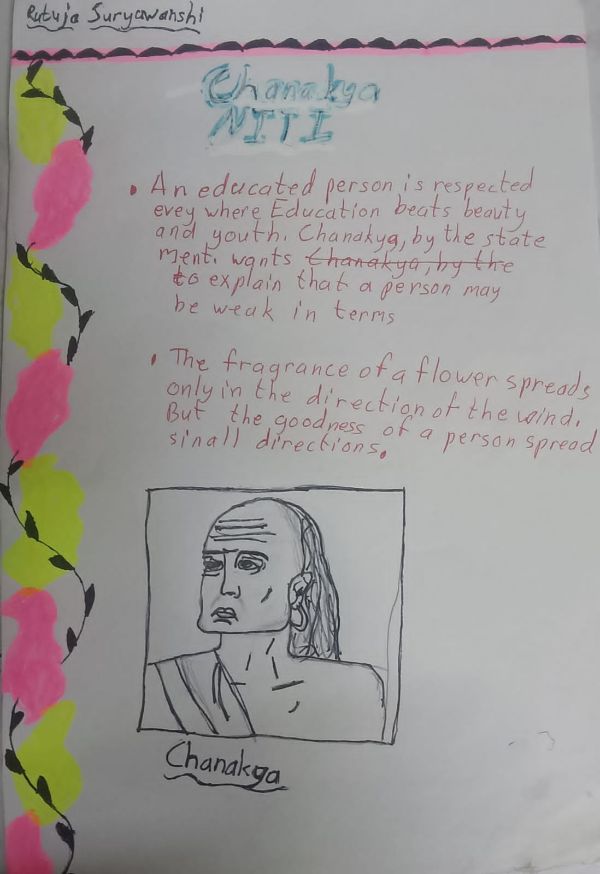 Rutuja Suryawanshi
Chanakya
NITI
• An educated person is respected
evey where Education beats beauty
and youth. Chanakya, by the state
ment. wants Chanakya, by the
to explain that a person may
be weak in terms
• The fragrance of a flower spreads
only in the direction of the wind.
But the goodness of a person spread
sinall directions.
Chanakya